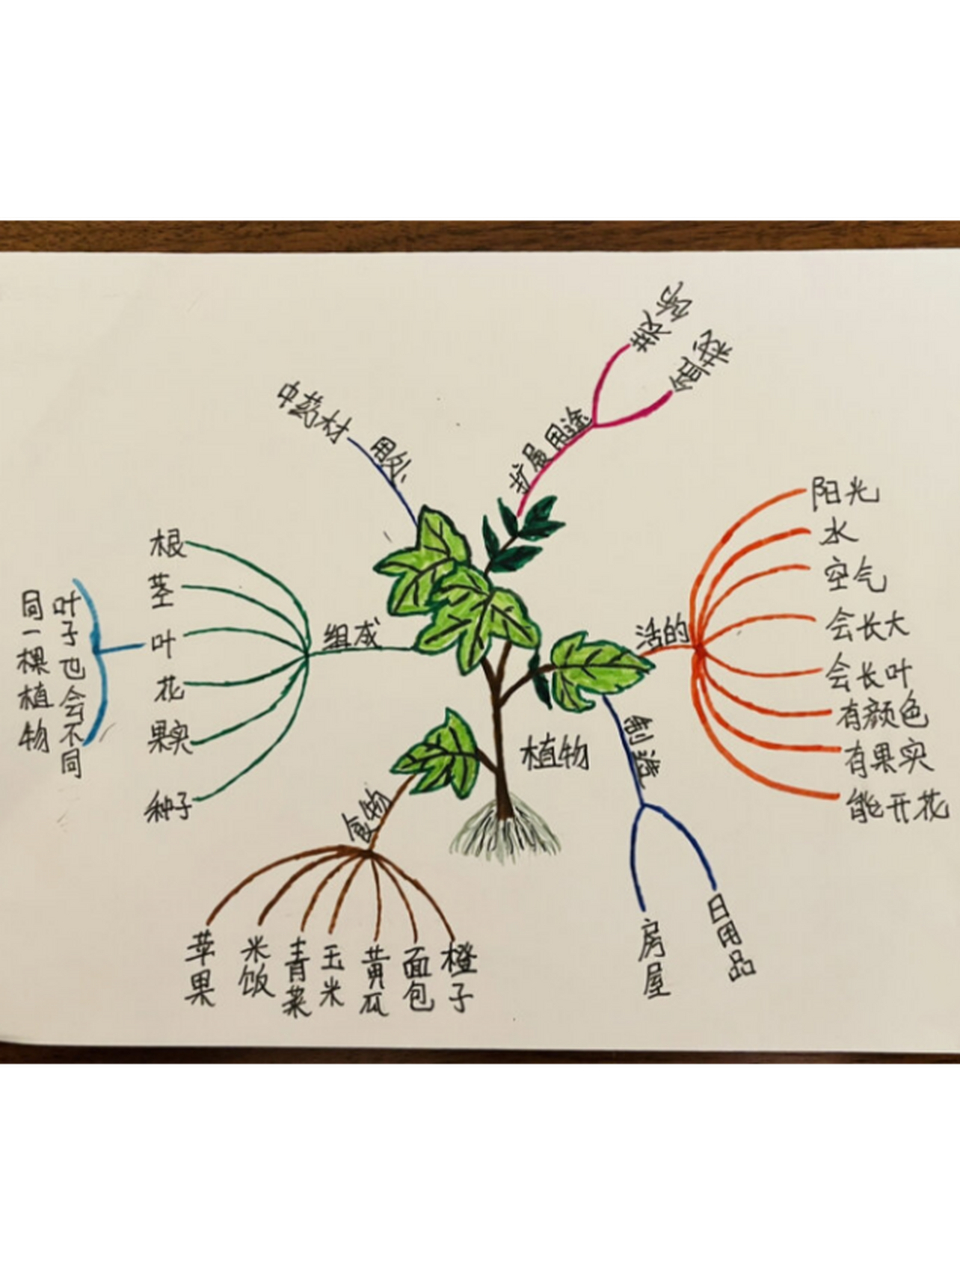 装饰
盆栽
扩展用途
中药材
用处
阳光
水
空气
会长大
会长叶
有颜色
有果实
能开花
活的
根
茎
叶
花
果实
种子
组成
同一棵植物
叶子也会不同
植物
制造
房屋
日用品
食物
苹果
米饭
青菜
玉米
黄瓜
面包
橙子